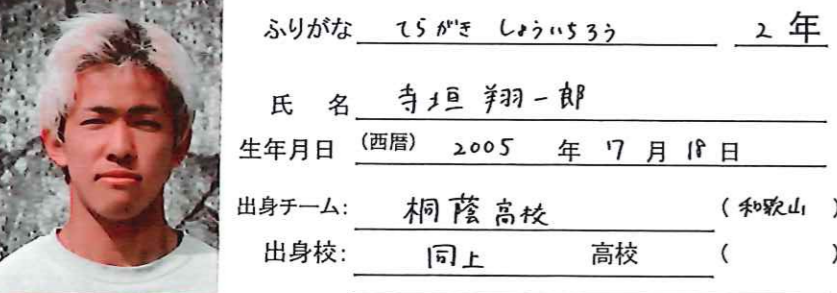 ふりがな てらがき しょういちろう 2 年
氏 名 寺垣 翔一郎
生年月日 (西暦) 2005 年 7 月 18 日
出身チーム: 桐蔭高校 ( 和歌山 )
出身校: 同上 高校 ( )